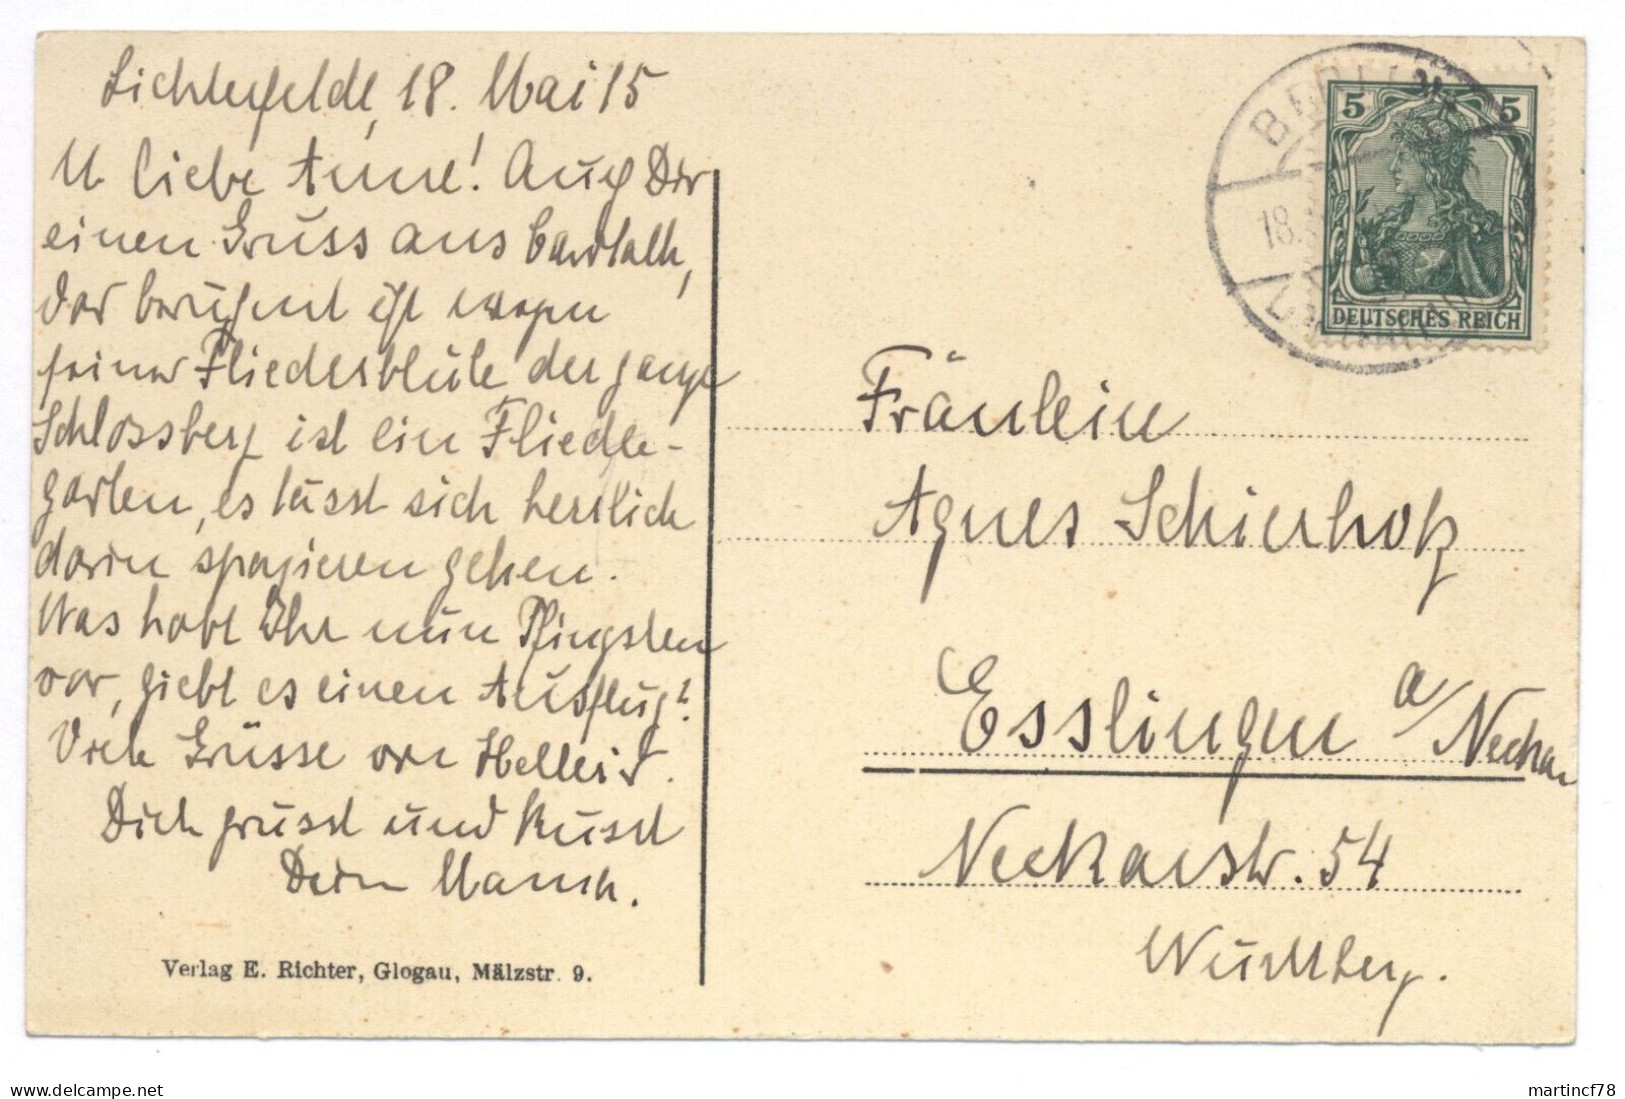 Lichterfelde, 18. Mai 15
M. liebe Anne! Auch Dir
einen Gruss aus Carolath,
das berühmt ist wegen
seiner Fliederblüte der ganze
Schlossberg ist ein Flieder-
garten, es lässt sich herrlich
darin spazieren gehen.
Was habt Ihr nun Pfingsten
vor, giebt es einen Ausflug?
Viele Grüsse von
Dich grüsst und küsst
Dein
Verlag E. Richter, Glogau, Mälzstr. 9.
BERLIN
18.
5 5
DEUTSCHES REICH
Fräulein
Agnes Schierholz
Esslingen a/Neckar
Neckarstr. 54
Württberg.
delcampe.net
martincf78